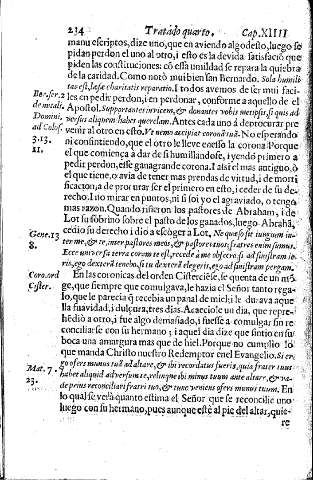 234 Tratado quarto. Cap. XIIII
manu escriptos, dize uno, que en aviendo algo desto, luego se
pidan perdon el uno al otro, i esto es la devida satisfació que
piden las constituciones: cō essa umildad se repara la quiebra
de la caridad. Como notò mui bien san Bernardo. Sola humili
tas est, læsæ charitatis reparatio. I todos avemos de ser muí faci-
Ber. ser. 2 les en pedir perdon, i en perdonar, conforme a aquello de el
de modis. Apostol. Supportantes invicem, & donantes vobis metipsis, si quis ad-
Domini, versus aliquem habet querelam. Antes cada uno à de procurar pre
ad Colos. venir al otro en esto. Ve nemo accipiat coronā tuā. No esperando
3. 13. ni consintiendo, que el otro le lleve en esso la corona Porque
11. el que comiença à dar de si humillandose, i yendo primero a
pedir perdon, esse ganagrande corona. I assi el mas antiguo, ò
el que tiene, ò avia de tener mas prendas de virtud, i de morti
ficacion, a de procurar ser el primero en esto, i ceder de su de-
recho. I no mirar en puntos, ni si soi yo el agraviado, o tengo
mas razon. Quando riñeron los pastores de Abraham, i de
Lot su sobrino sobre el pasto de los ganados, luego Abrahā,
Gene. 13 cedio su derecho i dio a escoger à Lot, Ne quæso sit iurgium in-
8. ter me, & te, inter pastores meos, & pastores tuos: fratres enim sumus.
Ecce universa terra coram te est, recede à me obsecro si ad sinistram ie-
ris, ego dexterā tenebo, si tu dexterā elegeris, ego ad sinistram pergam.
Coro. ord En las coronicas del orden Cisterciēse, se quenta de un mō-
Cister. ge, que siempre que comulgava, le hazia el Señor tanto rega-
lo, que le parecia q̄ recebia un panal de miel: i le durava aque
lla suavidad, i dulçura, tres dias. Acaeciole un dia, que repre-
hēdiò a otro, i fue algo demasiado, i fuesse a comulgar sin re
conciliarse con su hermano; i aquel dia dize que sintio en su
boca una amargura mas que de hiel. Porque no cumplio lo
que manda Christo nuestro Redemptor en el Evangelio. Si er-
Mat. 7. go offers munus tuū ad altare, & ibi recordatus fueris, quia frater tuus
23. habet aliquid adversum te, relinque ibi munus tuum ante altare, & va-
de prius reconciliari fratri tuo, & tunc veniens offers munus tuum. En
lo qual se verà quanto estima el Señor que se reconcilie uno
luego con su hermano, pues aunque estè al pie del altar, quie-
re